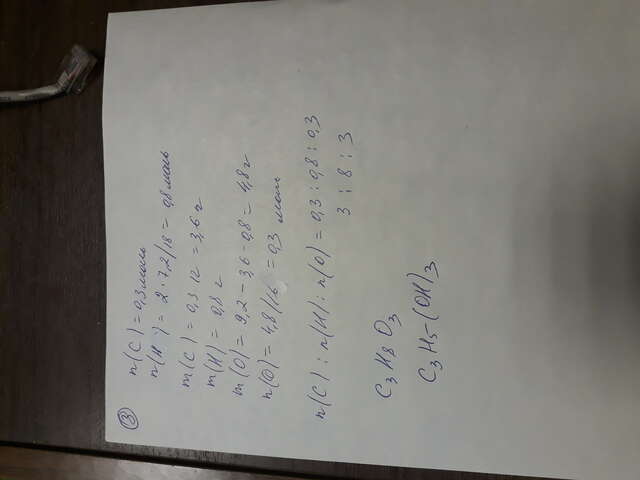 3
n(C) = 0,3 моль
n(H) = 2·7,2/18 = 0,8 моль
m(C) = 0,3 12 = 3,6 г
m(H) = 0,8 г
m(O) = 9,2 - 3,6 - 0,8 = 4,8 г
n(O) = 4,8/16 = 0,3 моль
n(C) : n(H) : n(O) = 0,3 : 0,8 : 0,3
3 : 8 : 3
C₃H₈O₃
C₃H₅-(OH)₃